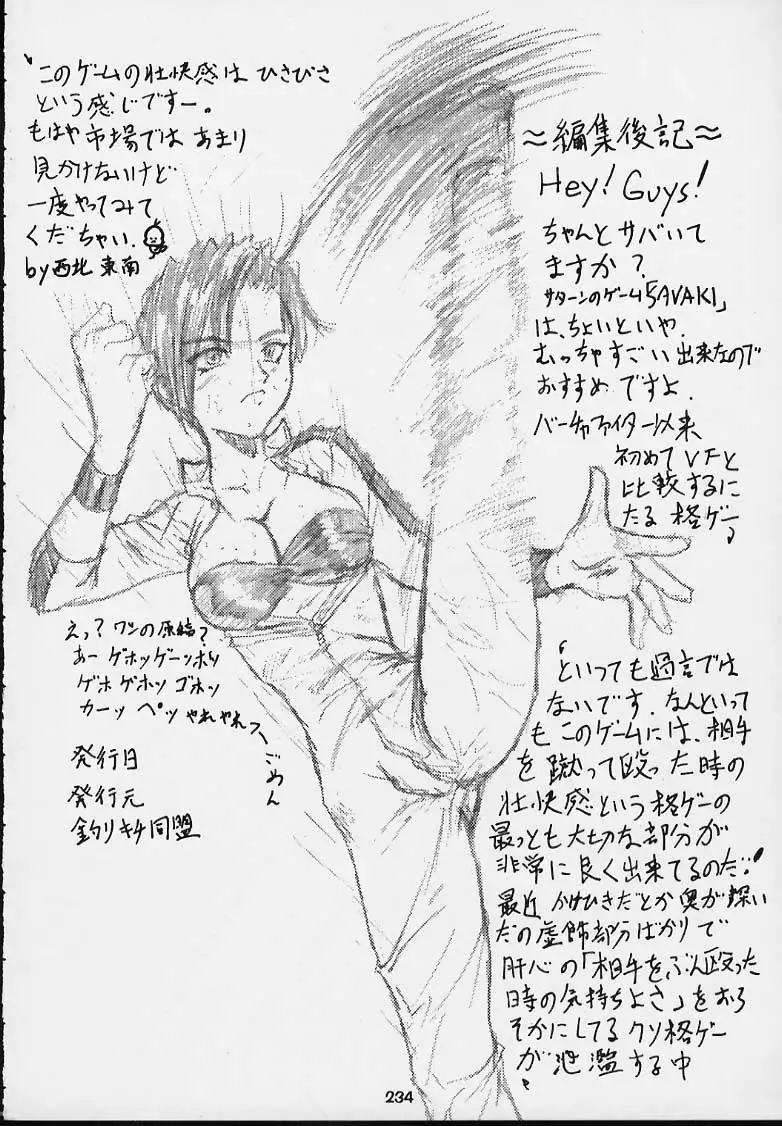 ≈編集後記≈
Hey! Guys!
ちゃんとサバいて
ますか?
サターンのゲーム「SAVAKI」
は、ちょいといや、
むっちゃすごい出来なので
おすすめですよ。
バーチャファイター以来
初めてVFと
比較するに
たる格ゲー
といっても過言では
ないです。なんといって
もこのゲームには、相手
を蹴って殴った時の
壮快感という格ゲーの
最っとも大切な部分が
非常に良く出来てるのだ。
最近かけひきだとか奥が深い
だの虚飾部分ばかりで
肝心の「相手をぶん殴った
時の気持ちよさ」をおろ
そかにしてるクソ格ゲー
が氾濫する中
このゲームの壮快感はひさびさ
という感じですー。
もはや市場ではあまり
見かけないけど
一度やってみて
くだちゃい。
by西北東南
えっ?ワシの原稿?
あーゲホッゲーッホッ
ゲホゲホッゴホッ
カーッペッやれやれ
ごめん
発行日
発行元
釣りキチ同盟
234